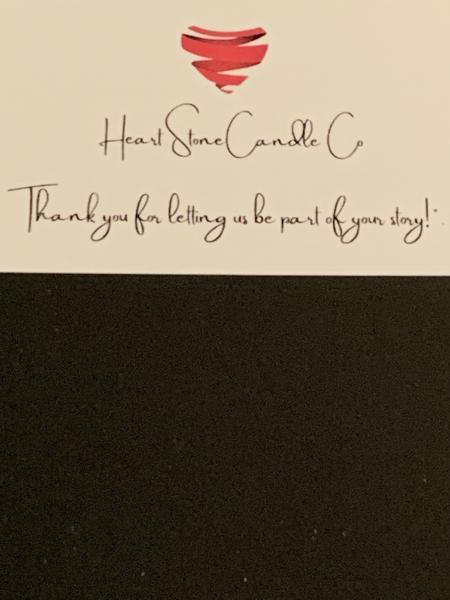 Heart Stone Candle Co
Thank you for letting us be part of your story!"